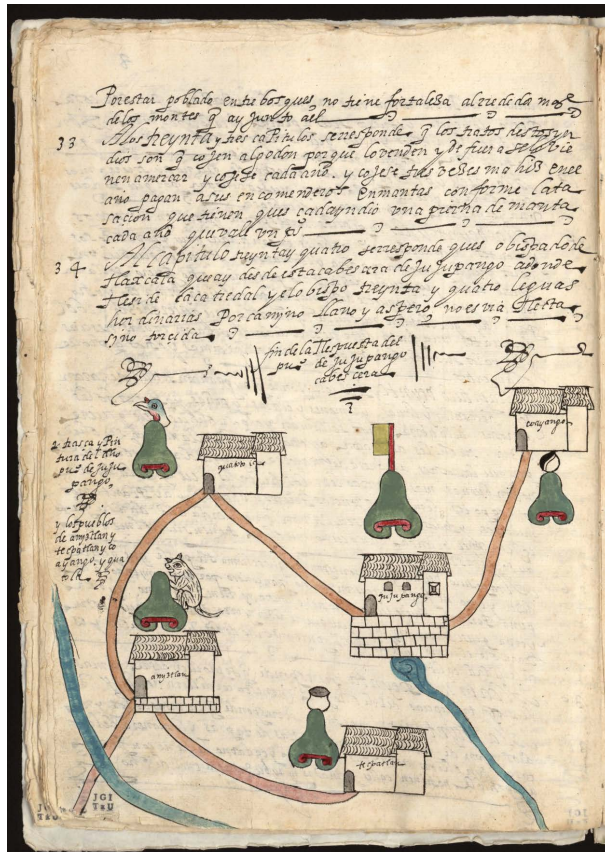 Por estar poblado entre bosques, no tiene fortaleza al rrededor mas
de los montes q ay junto a el
33
A los treynta y tres capitulos se rresponde q los tratos destos yn
dios son q cojen algodon porque lo venden y de fuera se lo vie
nen a mercar y cojese cada año. y cojese tres vezes mahiz en el
año pagan a sus encomenderos en mantas conforme la ta
sacion que tienen ques cada yndio una pierna de manta
cada año que vale un ps
34
Al capitulo treynta y quatro se rresponde ques obispado de
tlaxcala que ay desde esta cabecera de jujupango adonde
rreside la catredal y el obispo treynta y quatro leguas
hordinarias por camino llano y aspero, no es via rrecta
sino torcida
fin de la rrespuesta del
pu° de jujupango
cabescera
traça y Pin
tura del año
pu° de juju
pango,
y los pueblos
de anyztlan y
tecpatlan y co
ayango. y gua
tola
coayango
jujupango
anyztlan
tecpatlan
JGI
TxU